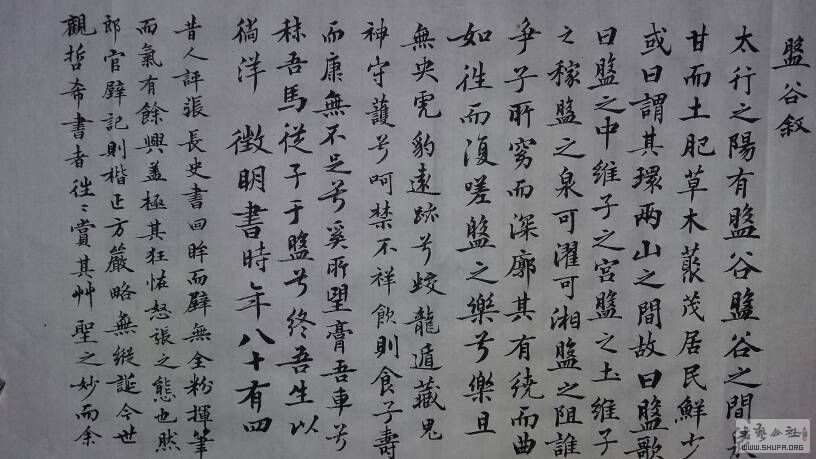 盤谷叙
太行之陽有盤谷盤谷之間泉
甘而土肥草木叢茂居民鮮少
或曰謂其環兩山之間故曰盤歌
曰盤之中維子之宮盤之土維子
之稼盤之泉可濯可湘盤之阻誰
爭子所窈而深廓其有繞而曲
如往而復嗟盤之樂兮樂且
無央虎豹遠跡兮蛟龍遁藏鬼
神守護兮呵禁不祥飲則食子壽
而康無不足兮奚所望膏吾車兮
秣吾馬從子于盤兮終吾生以
徜洋 徵明書時年八十有四
昔人評張長史書回眸而壁無全粉揮筆
而氣有餘興蓋極其狂怪怒張之態也然
郎官壁記則楷正方嚴略無縱誕今世
觀哲希書者往々賞其艸聖之妙而余
WWW.SHUFA.ORG